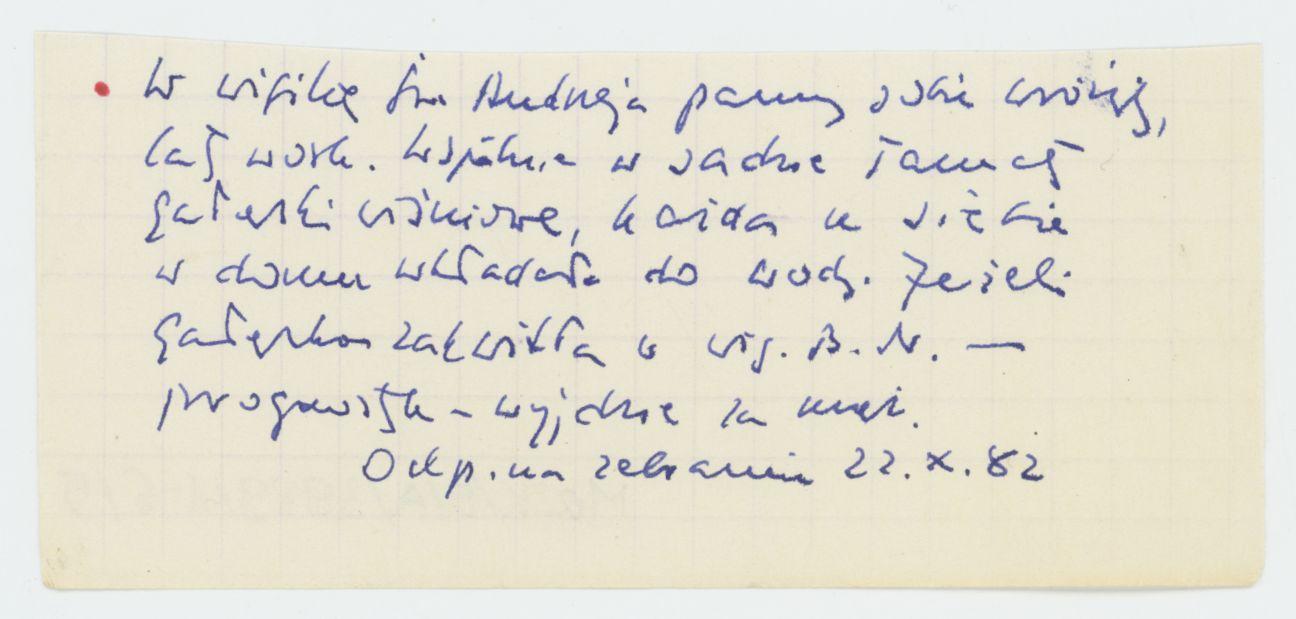 W wigilię św. Andrzeja panny sobie wróżą,
leją wosk. Wspólnie w sadzie łamią
gałązki wiśniowe, każda u siebie
w domu wkładała do wody. Jeżeli
gałązka zakwitła w wig. B. N. —
prognostyk – wyjdzie za mąż.
Odp. na zebraniu 22.X.82